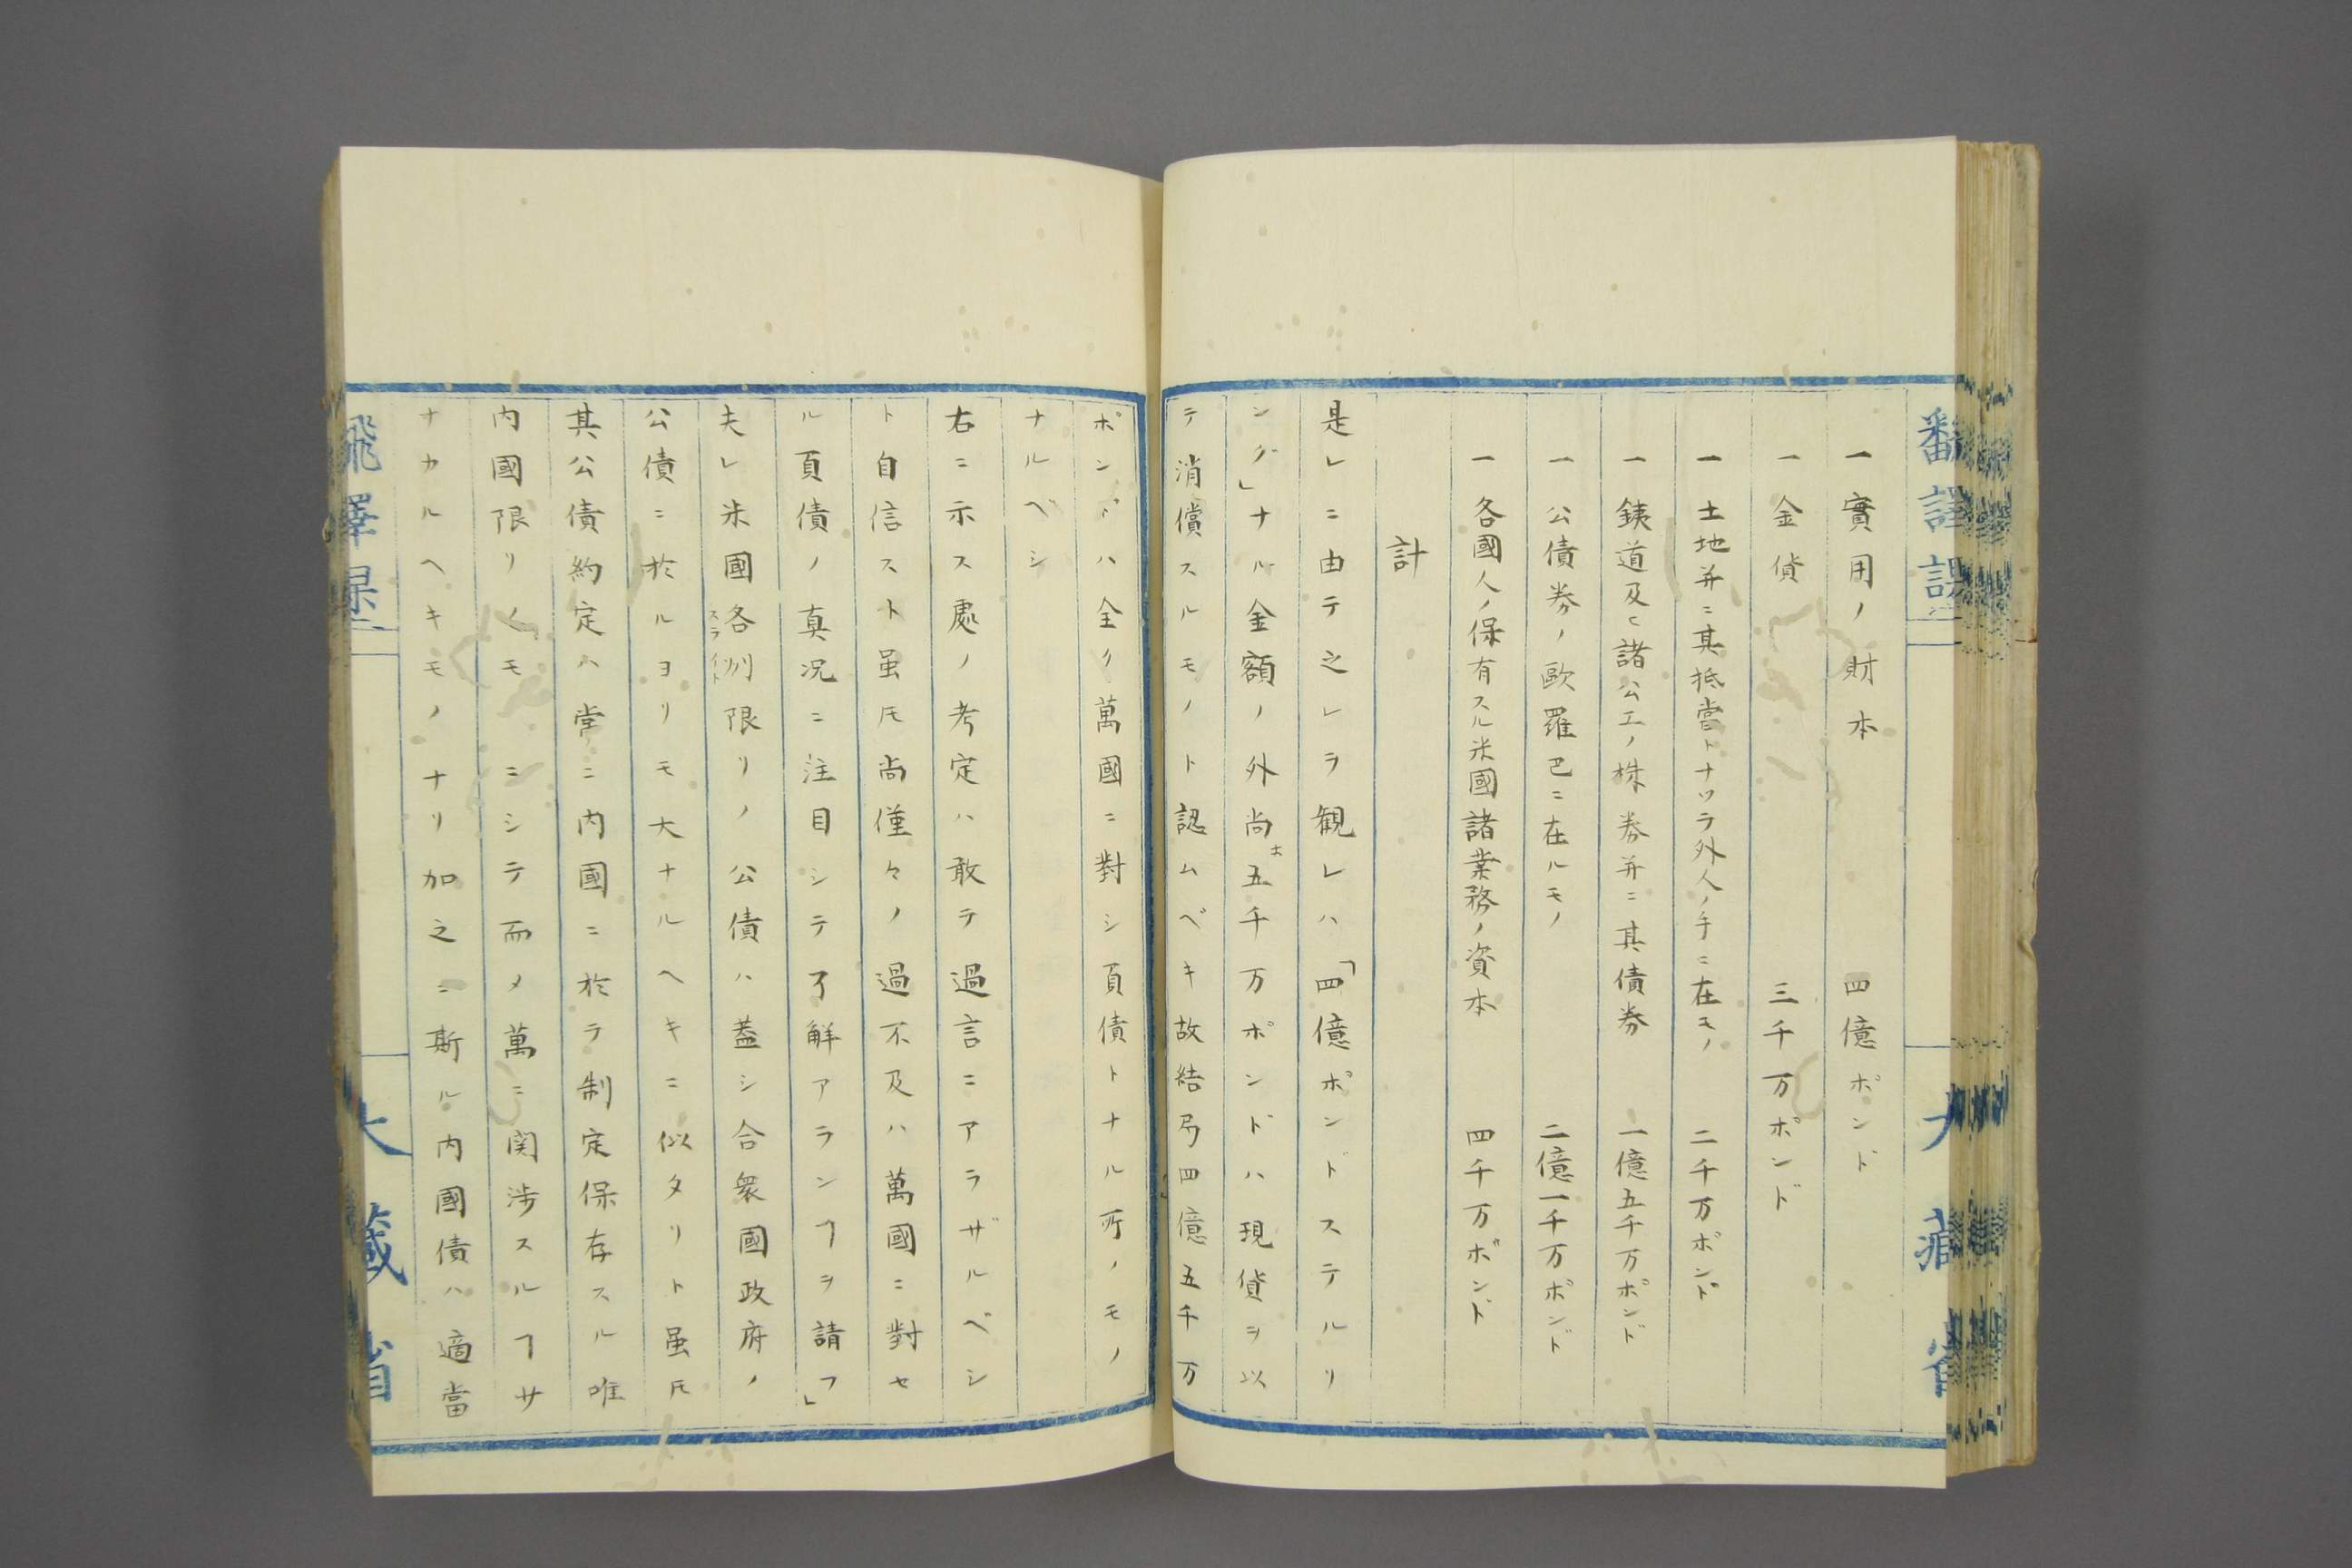 一實用ノ財本　四億ポンド
一金貨　三千万ポンド
一土地并ニ其抵當トナツラ外人ノ手ニ在モノ　二千万ポンド
一銕道及ヒ諸公工ノ株券并ニ其債券　一億五千万ポンド
一公債券ノ歐羅巴ニ在ルモノ　二億一千万ポンド
一各國人ノ保有スル米國諸業務ノ資本　四千万ポンド
計
是レニ由テ之レラ観レハ「四億ポンドステルリ
ング」ナル金額ノ外尚ホ五千万ポンドハ現貨ヲ以
テ消償スルモノト認ムベキ故結局四億五千万
ポンドハ全ク萬國ニ對シ負債トナル所ノモノ
ナルベシ
右ニ示ス處ノ考定ハ敢テ過言ニアラザルベシ
ト自信スト虽𪜈尚僅々ノ過不及ハ萬國ニ對セ
ル負債ノ真况ニ注目シテ了解アランヿヲ請フ」
夫レ米國各洲限リノ公債ハ蓋シ合衆國政府ノ
公債ニ於ルヨリモ大ナルヘキニ似タリト虽𪜈
其公債約定ハ常ニ内國ニ於ラ制定保存スル唯
内國限リノモニシテ而メ萬ニ関渉スルヿサ
ナカルヘキモノナリ加之ニ斯ル内國債ハ適當
大藏省
大藏省